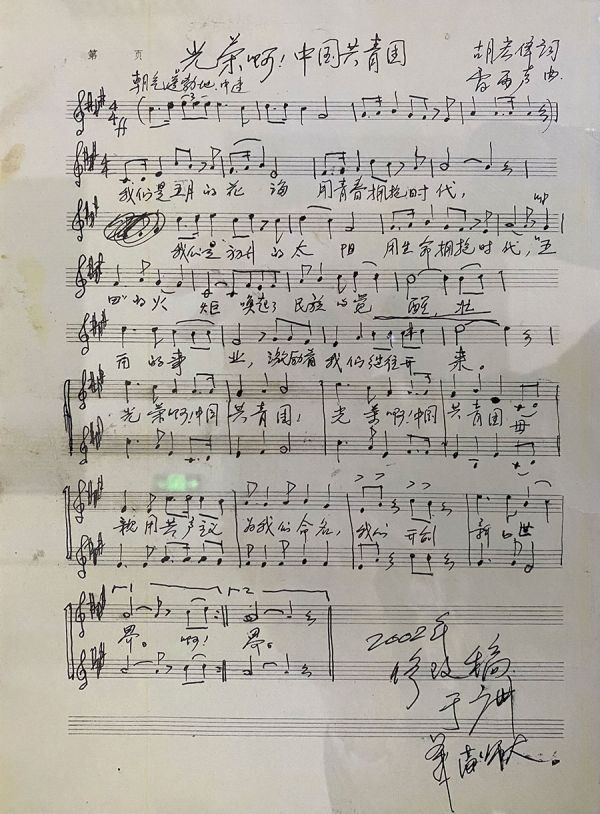 第 页
光荣啊！中国共青团
胡宏伟词
朝气蓬勃地 中速
雷雨声曲
4/4 ff
我们是五月的花海 用青春拥抱时代，
mp
我们是初升的太阳 用生命拥抱时代，"五
四"的火炬 唤起了民族的觉醒，壮
丽的事业，激励着我们继往开来。
光荣啊！中国共青团！光荣啊！中国共青团 母
亲用共产主义为我们命名，我们开创新的世
1 2
界。啊！界。
2002年
修改稿
于广州
华南师大。